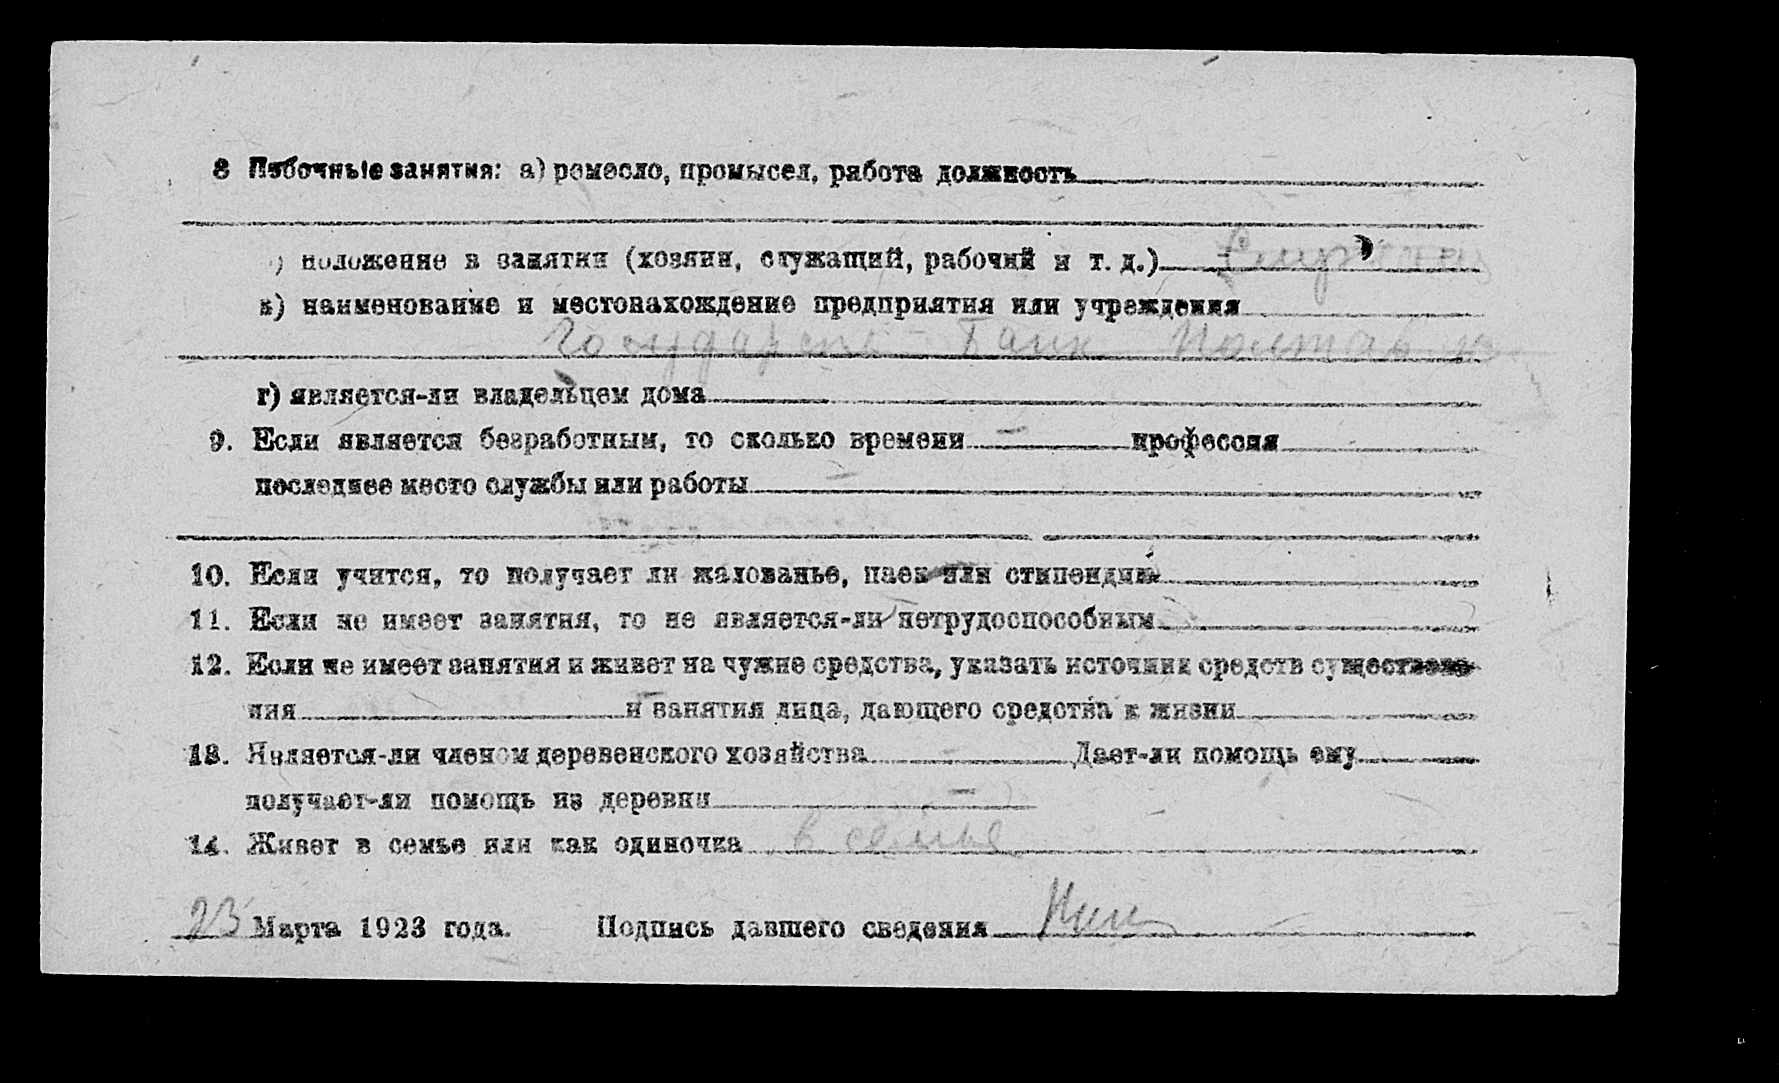 8 Побочные занятия: а) ремесло, промысел, работа должность
) положение в занятии (хозяин, служащий, рабочий и т. д.)
в) наименование и местонахождение предприятия или учреждения
Государств Банк Полтав
г) является-ли владельцем дома
9. Если является безработным, то сколько времени — профессия
последнее место службы или работы —
10. Если учится, то получает ли жалованье, паек или стипендию
11. Если не имеет занятия, то не является-ли нетрудоспособным
12. Если не имеет занятия и живет на чужие средства, указать источник средств существова-
ния и занятия лица, дающего средства к жизни
13. Является-ли членом деревенского хозяйства — Дает-ли помощь ему
получает-ли помощь из деревни —
14. Живет в семье или как одиночка в семье
23 Марта 1923 года. Подпись давшего сведения